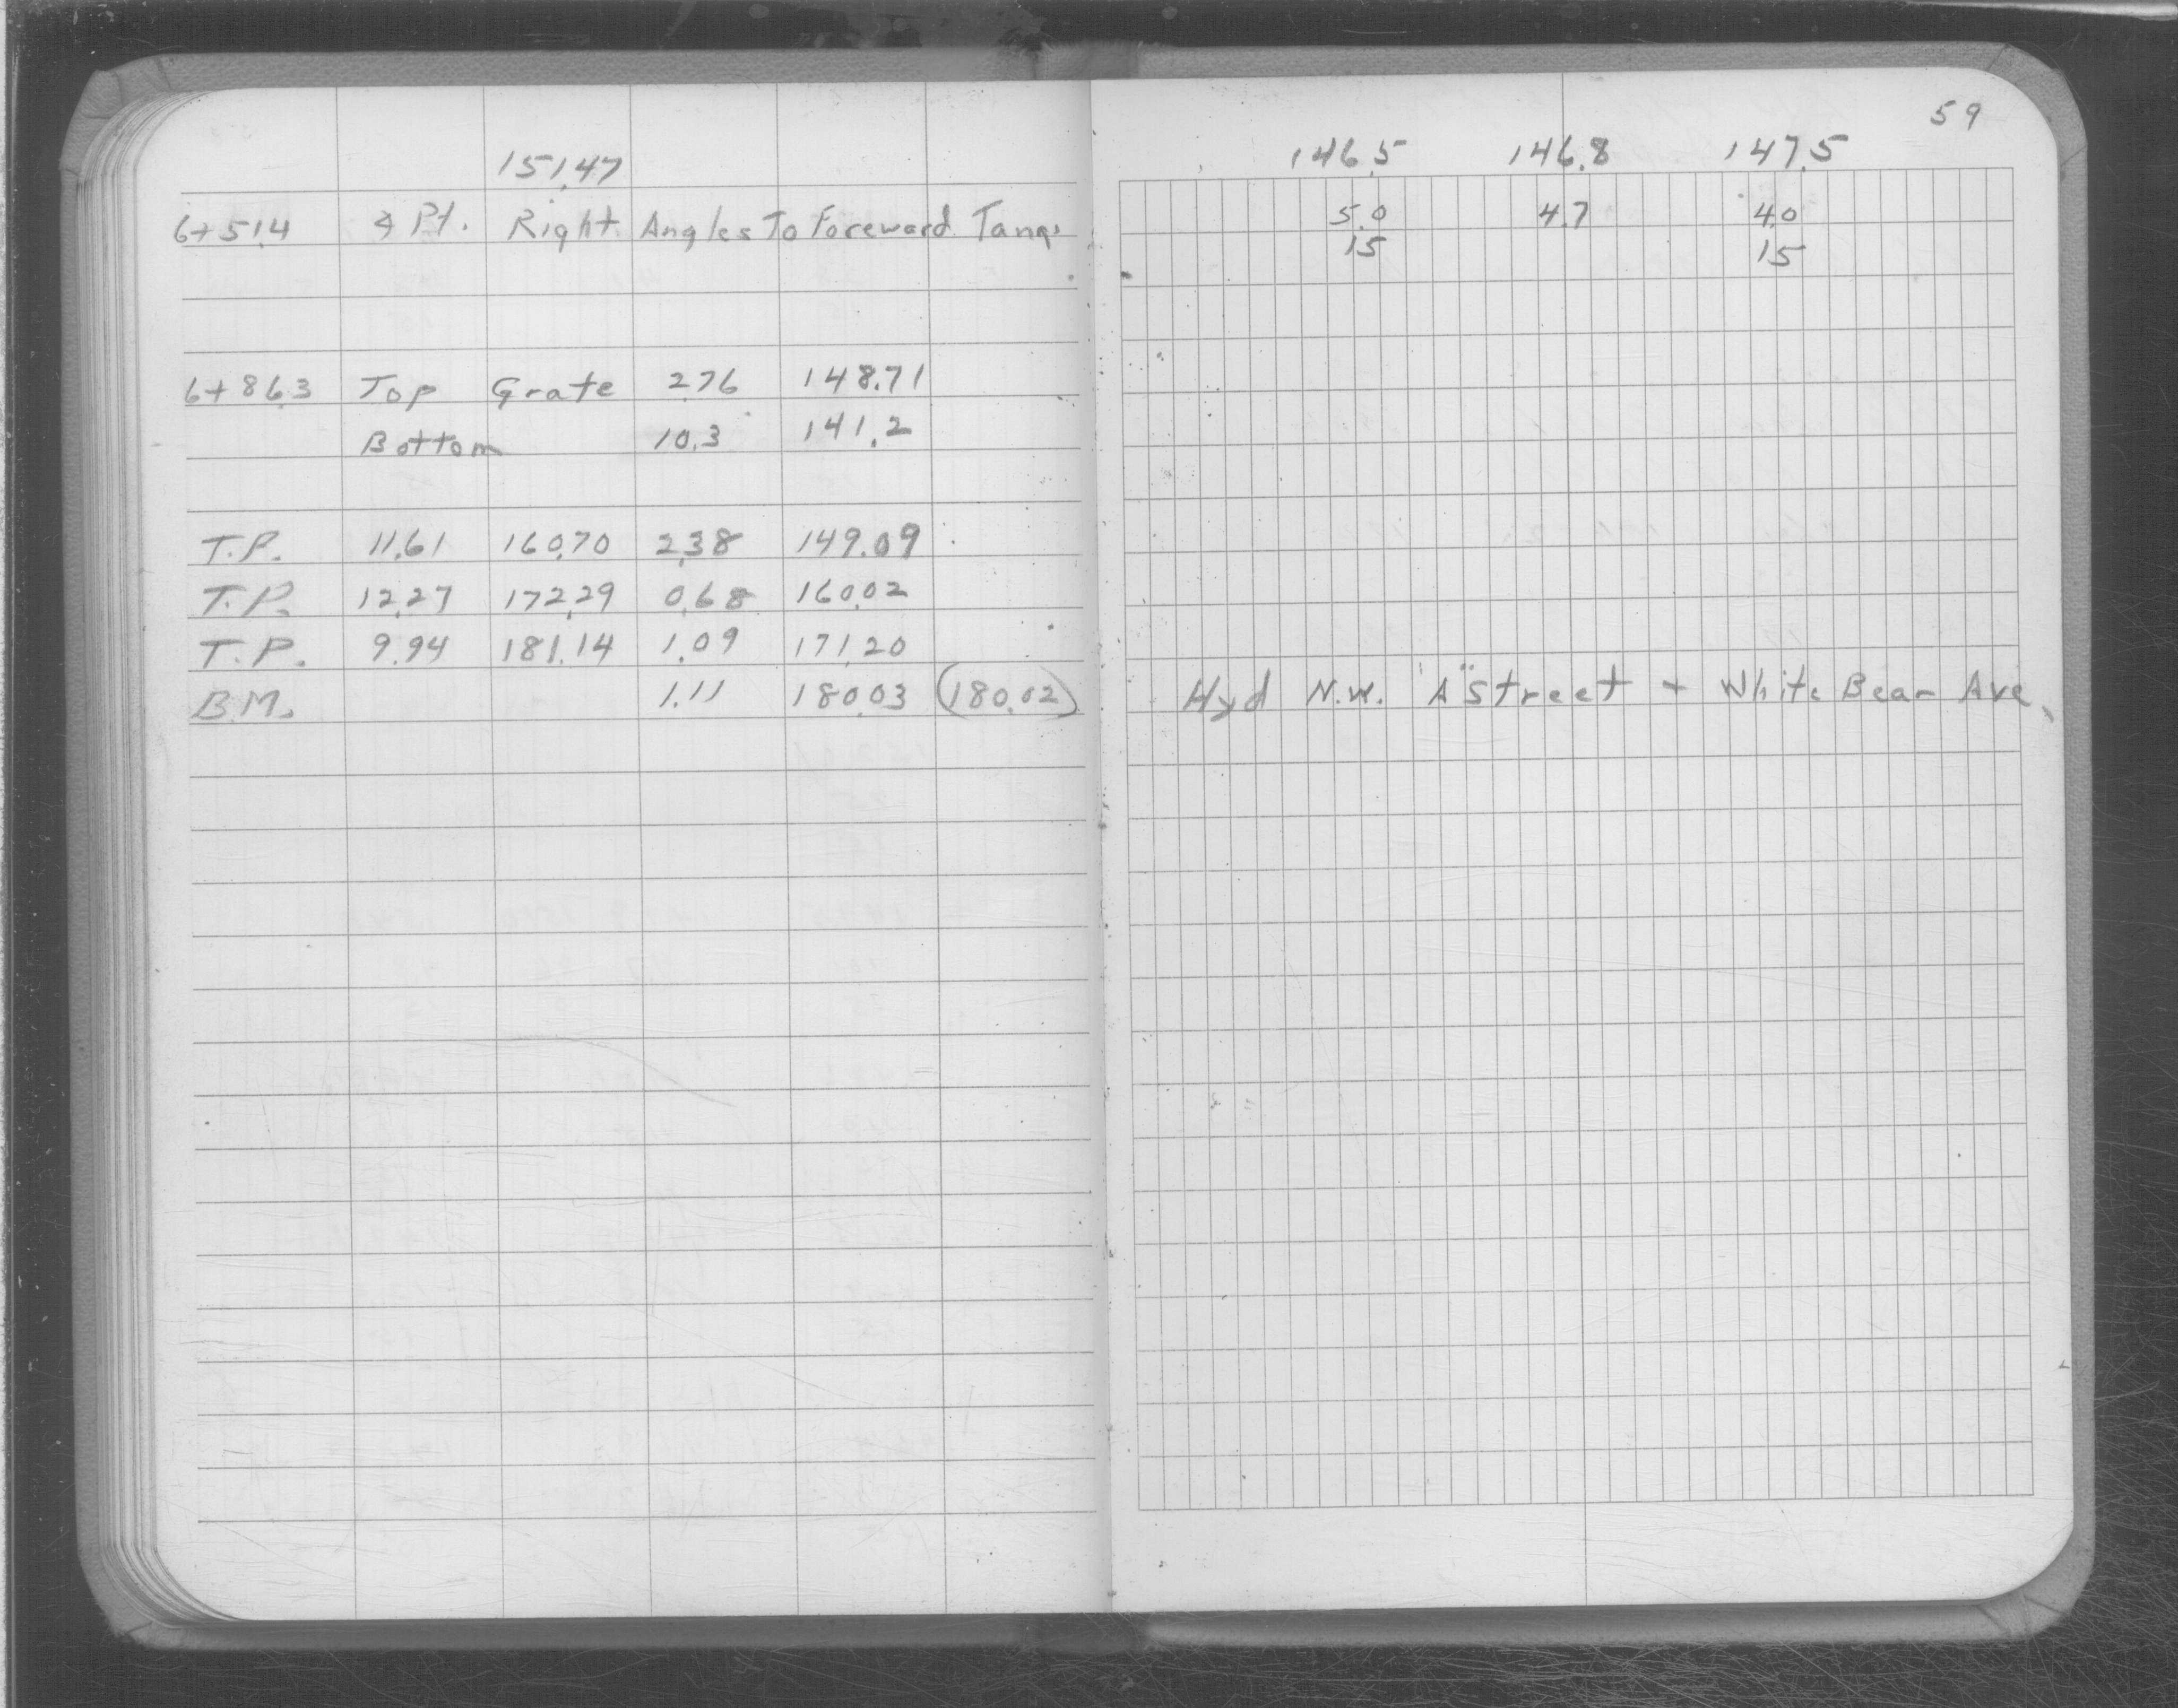 151.47
6+51.4 ∡ Pt. Right Angles To Foreward Tang.
6+86.3 Top Grate 2.76 148.71
Bottom 10.3 141.2
T.P. 11.61 160.70 2.38 149.09
T.P. 12.27 172.29 0.68 160.02
T.P. 9.94 181.14 1.09 171.20
B.M. 1.11 180.03 (180.02)
59
146.5 146.8 147.5
5.0 4.7 4.0
15 15
Hyd N.W. "A" Street + White Bear Ave.